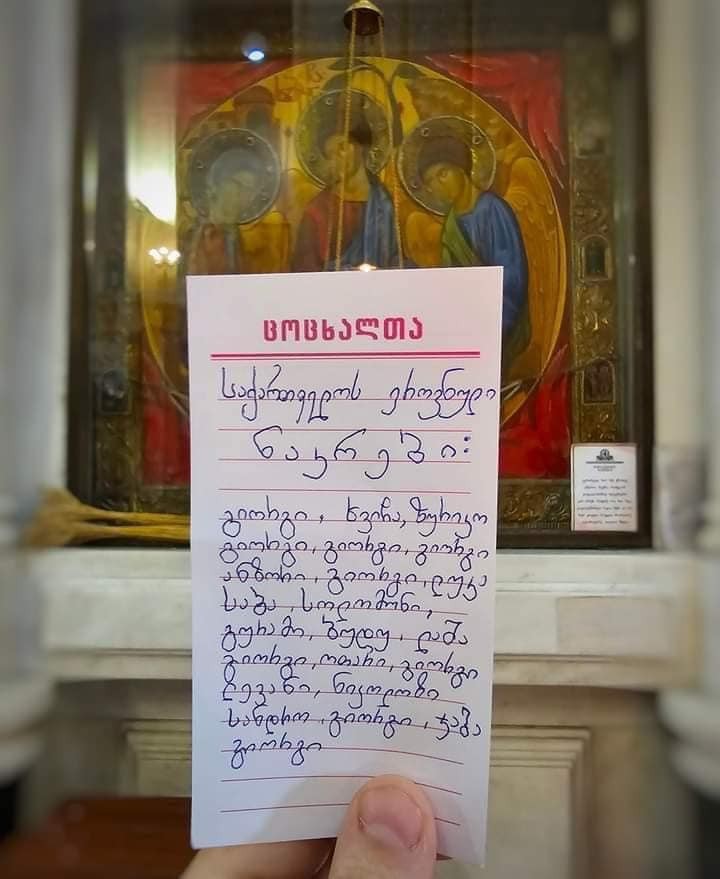 ცოცხალთა
საქართველოს ეროვნული
ნაკრები:
გიორგი, ხვიჩა, ზურიკო
გიორგი, გიორგი, გიორგი
ანზორი, გიორგი, ლუკა
საბა, სოლომონი,
გურამი, ბუდუ, ლაშა
გიორგი, ოთარი, გიორგი
ლევანი, ნიკოლოზი
სანდრო, გიორგი, ჯაბა
გიორგი